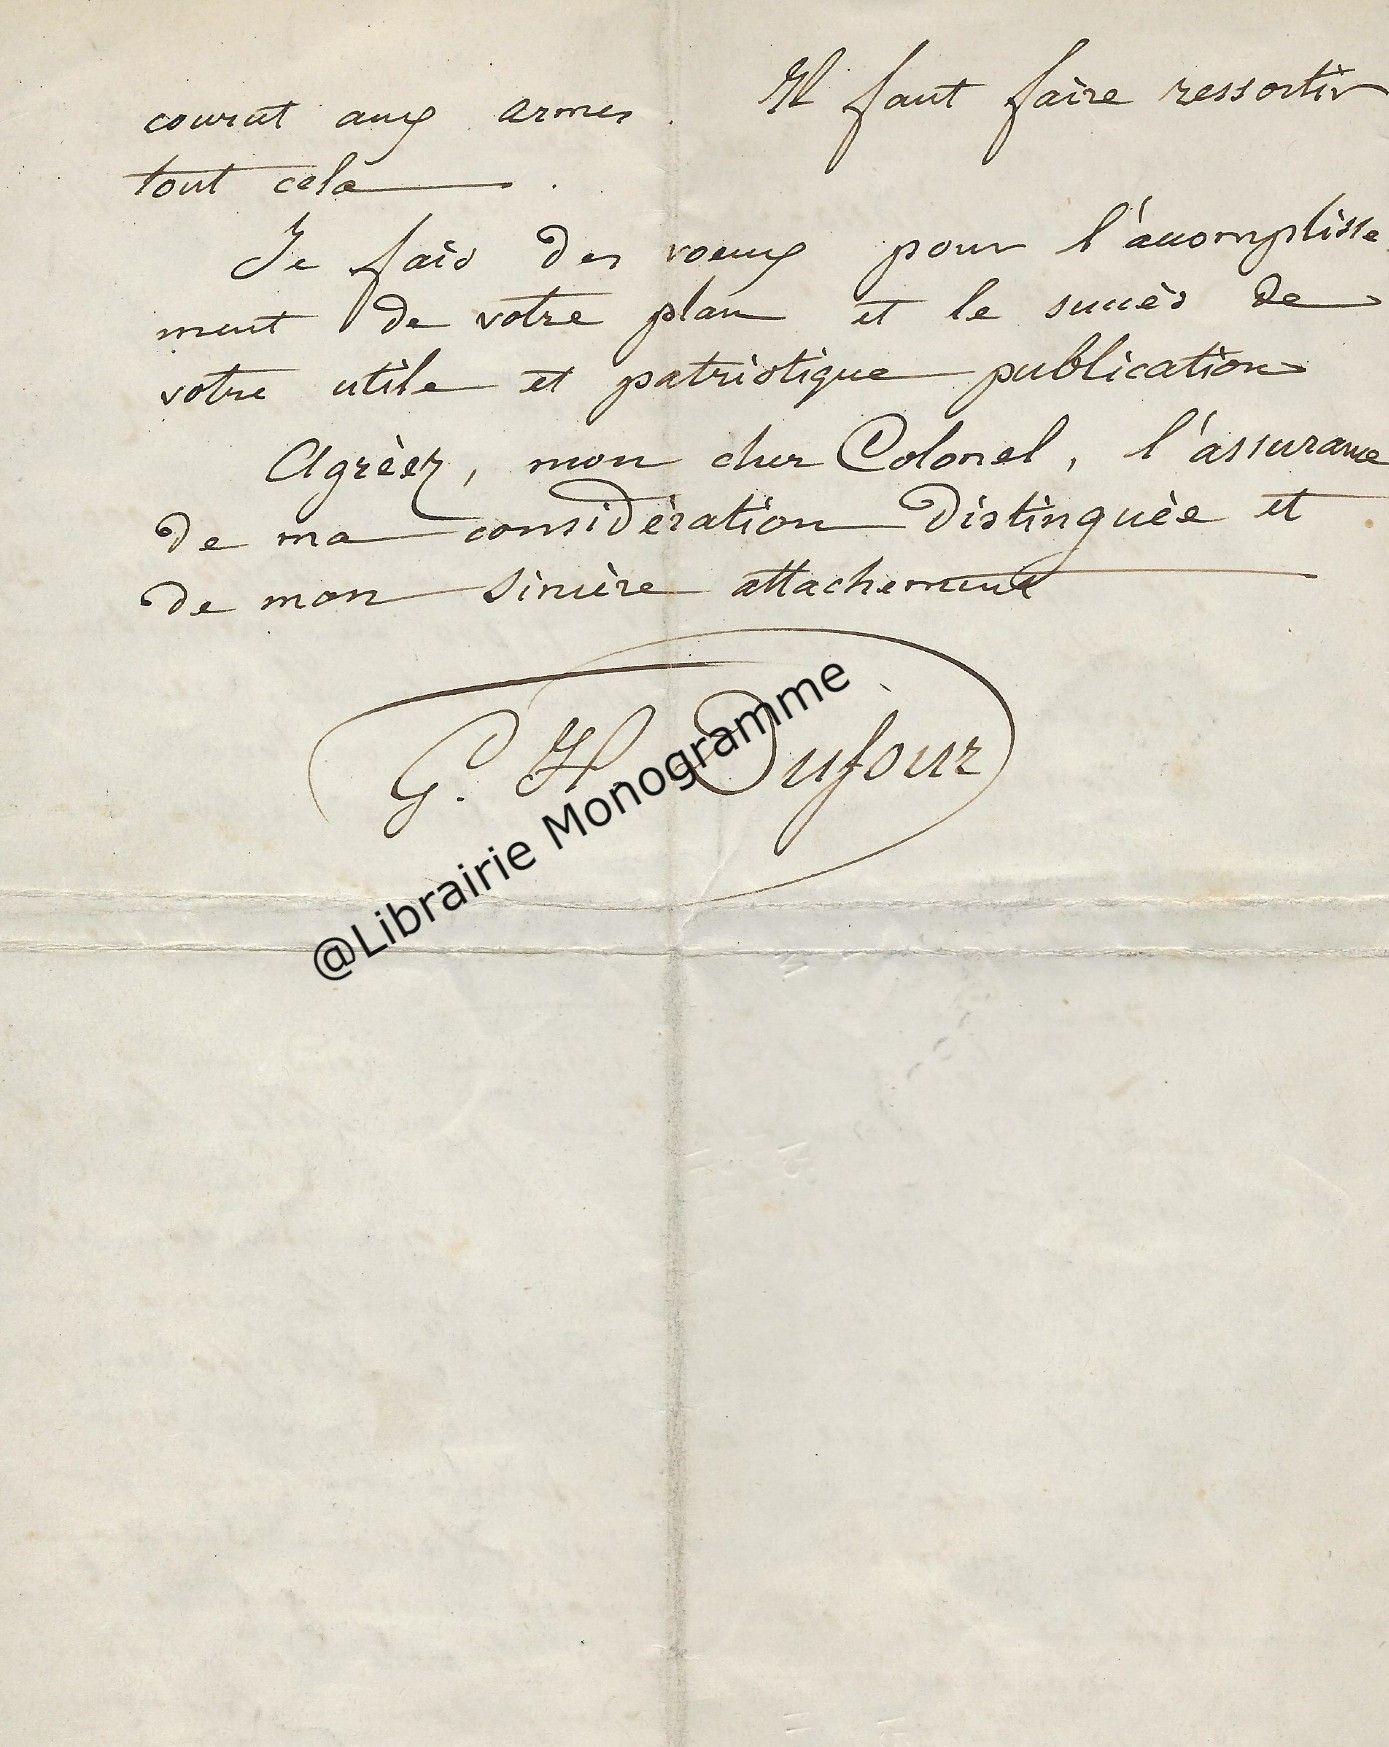 courut aux armes. Il faut faire ressortir
tout cela.
Je fais des voeux pour l'accomplisse
ment de votre plan et le succès de
votre utile et patriotique publication
Agréez, mon cher Colonel, l'assurance
de ma considération distinguée et
de mon sincère attachement
G. H. Dufour
@Librairie Monogramme